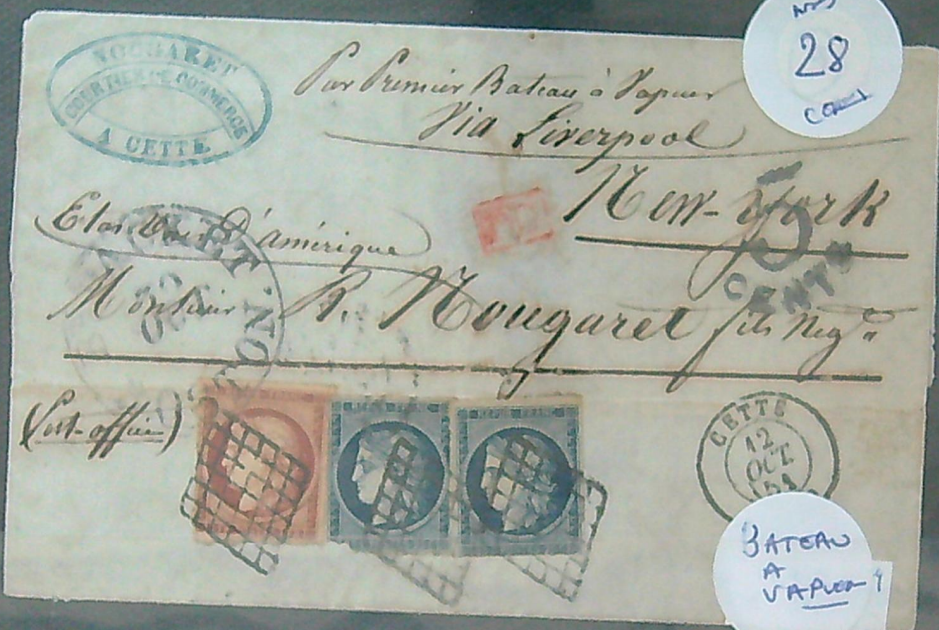 NOUGARET
COURTIER DE COMMERCE
A CETTE
28
Par Premier Bateau à Vapeur
Via Liverpool
New-York
Etas Unis d'amérique
5
CENTS
Monsieur R. Nougaret fils Neg.
(Post-office)
CETTE
12
OCT
51
BATEAU
A
VAPEUR